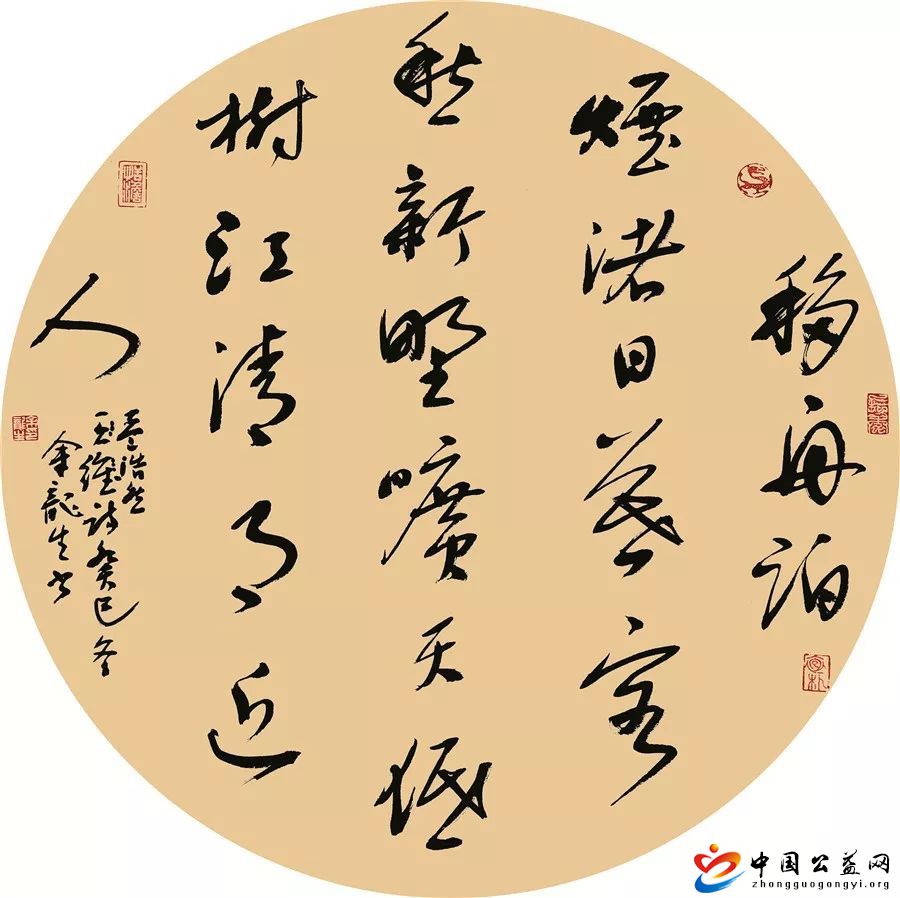 移舟泊
煙渚日暮客
愁新野曠天低
樹江清月近
人
孟浩然
詩癸巳冬
龍生書
中国公益网
zhongguogongyi.org